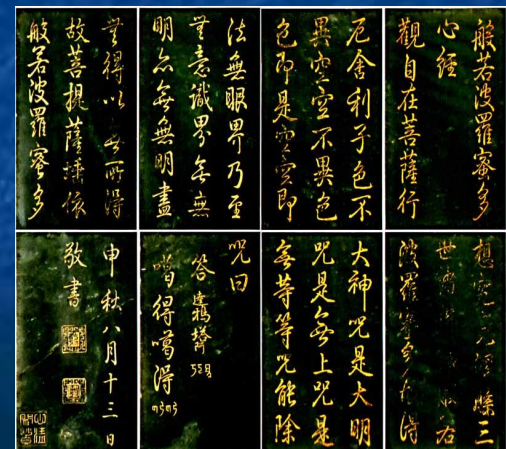 般若波羅蜜多
心經
觀自在菩薩行
厄舍利子色不
異空空不異色
色即是空空即
法無眼界乃至
無意識界無無
明亦無無明盡
無得以無所得
故菩提薩埵依
般若波羅蜜多
想究竟涅槃三
世諸
波羅蜜多故得
大神呪是大明
呪是無上呪是
無等等呪能除
呪曰
答達鴉塔
噶得噶得
申秋八月十三日
敬書